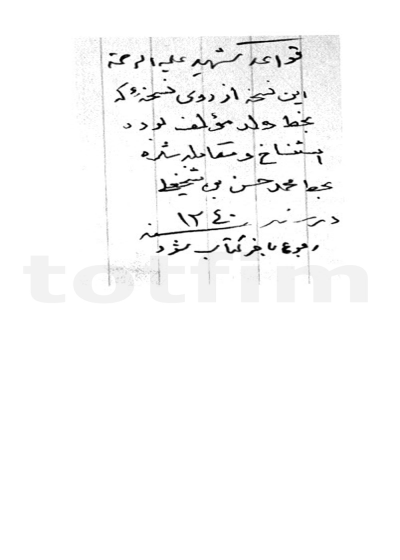 قواعد شهید علیه الرحمة
این نسخه از روی نسخهٔ که
بخط ولد مؤلف بود
استنساخ و مقابله شده
بخط محمد حسن بن
در سنه ۱۲٤۰
رجوع بآخر کتاب شود
totfim